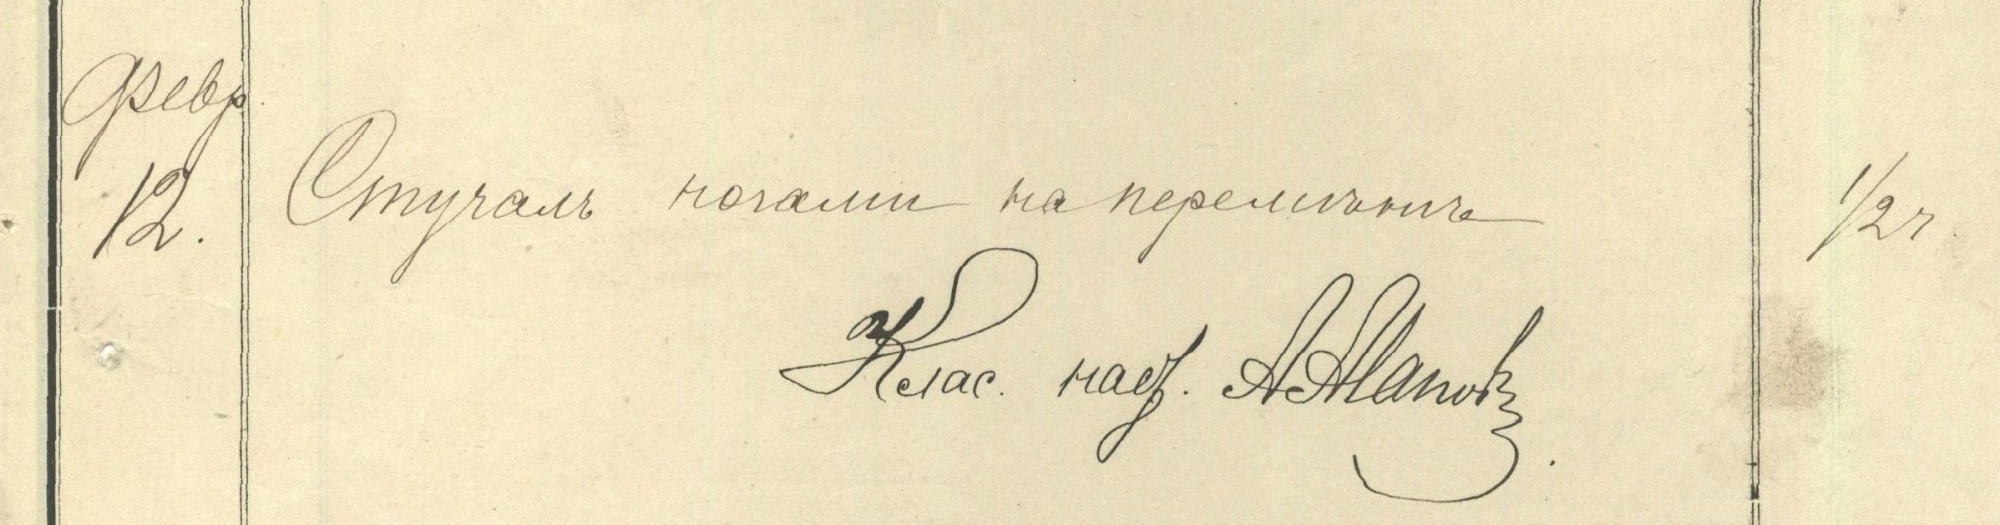 Февр.
12. Стучалъ ногами на перемѣнѣ 1/2 ч
Клас. надз.